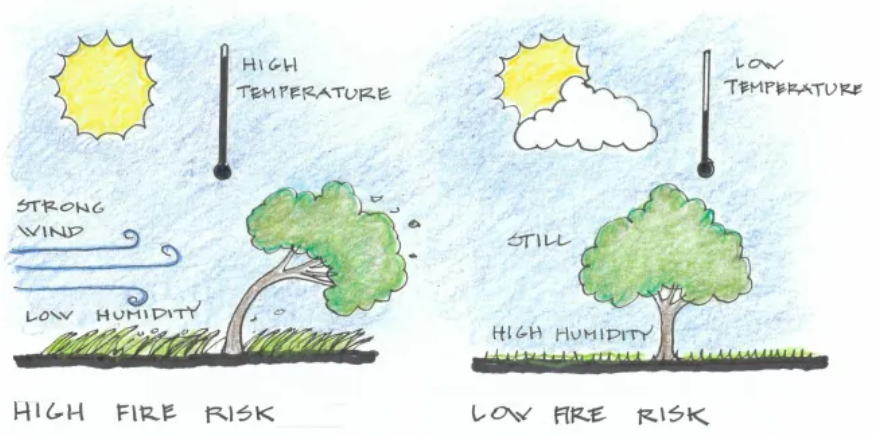 HIGH
TEMPERATURE
STRONG
WIND
LOW HUMIDITY
HIGH FIRE RISK
LOW
TEMPERATURE
STILL
HIGH HUMIDITY
LOW FIRE RISK